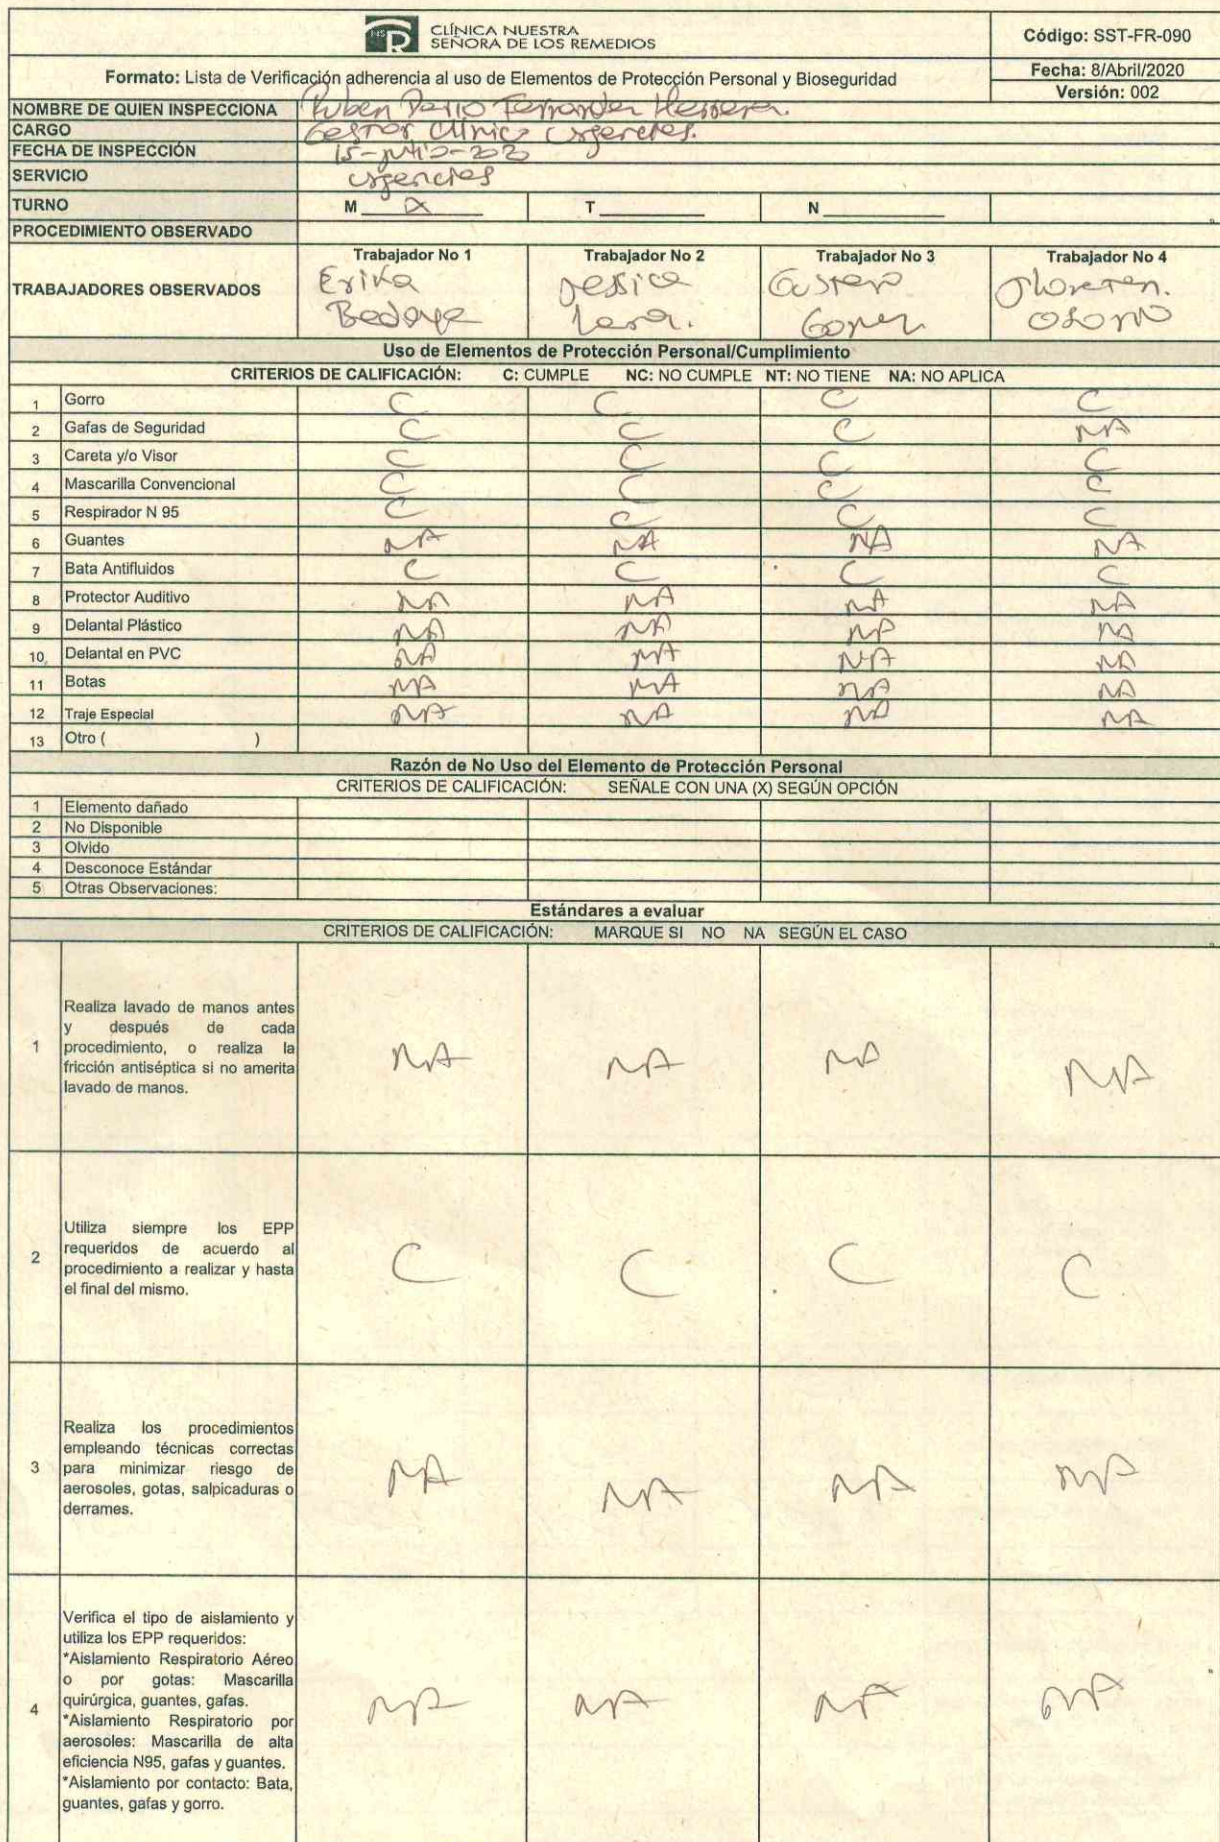 CLÍNICA NUESTRA
SEÑORA DE LOS REMEDIOS
Código: SST-FR-090
Formato: Lista de Verificación adherencia al uso de Elementos de Protección Personal y Bioseguridad
Fecha: 8/Abril/2020
Versión: 002
NOMBRE DE QUIEN INSPECCIONA Ruben Dario Fernandez Herrera.
CARGO Gestor Clínico Urgencias.
FECHA DE INSPECCIÓN 15-julio-2020
SERVICIO Urgencias
TURNO M X T N
PROCEDIMIENTO OBSERVADO
TRABAJADORES OBSERVADOS
Trabajador No 1 Trabajador No 2 Trabajador No 3 Trabajador No 4
Erika Jessica Gustavo
Bedoya Osorio
Uso de Elementos de Protección Personal/Cumplimiento
CRITERIOS DE CALIFICACIÓN: C: CUMPLE NC: NO CUMPLE NT: NO TIENE NA: NO APLICA
1 Gorro C C C C
2 Gafas de Seguridad C C C NA
3 Careta y/o Visor C C C C
4 Mascarilla Convencional C C C C
5 Respirador N 95 C C C C
6 Guantes NA NA NA NA
7 Bata Antifluidos C C C C
8 Protector Auditivo NA NA NA NA
9 Delantal Plástico NA NA NA NA
10 Delantal en PVC NA NA NA NA
11 Botas NA NA NA NA
12 Traje Especial NA NA NA NA
13 Otro ( )
Razón de No Uso del Elemento de Protección Personal
CRITERIOS DE CALIFICACIÓN: SEÑALE CON UNA (X) SEGÚN OPCIÓN
1 Elemento dañado
2 No Disponible
3 Olvido
4 Desconoce Estándar
5 Otras Observaciones:
Estándares a evaluar
CRITERIOS DE CALIFICACIÓN: MARQUE SI NO NA SEGÚN EL CASO
Realiza lavado de manos antes
y después de cada
1 procedimiento, o realiza la
fricción antiséptica si no amerita
lavado de manos.
NA NA NA NA
Utiliza siempre los EPP
2 requeridos de acuerdo al
procedimiento a realizar y hasta
el final del mismo.
C C C C
Realiza los procedimientos
empleando técnicas correctas
3 para minimizar riesgo de
aerosoles, gotas, salpicaduras o
derrames.
NA NA NA NA
Verifica el tipo de aislamiento y
utiliza los EPP requeridos:
*Aislamiento Respiratorio Aéreo
o por gotas: Mascarilla
quirúrgica, guantes, gafas.
4 *Aislamiento Respiratorio por
aerosoles: Mascarilla de alta
eficiencia N95, gafas y guantes.
*Aislamiento por contacto: Bata,
guantes, gafas y gorro.
NA NA NA NA